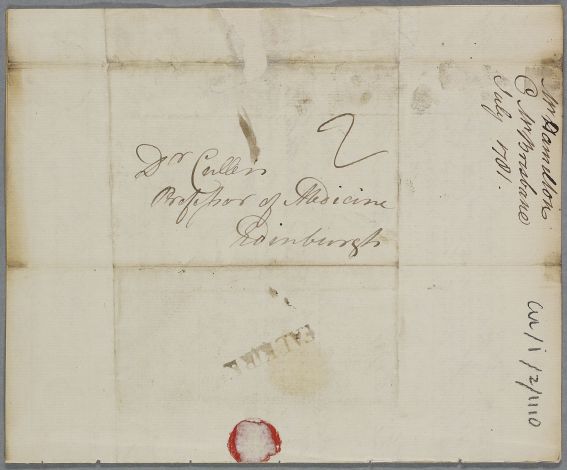 2
Dr Cullen
Professor of Medicine
Edinburgh
FALKIRK
Mr Hamilton
C Mr Brisbane
July 1781.
CUL/1/2/1110